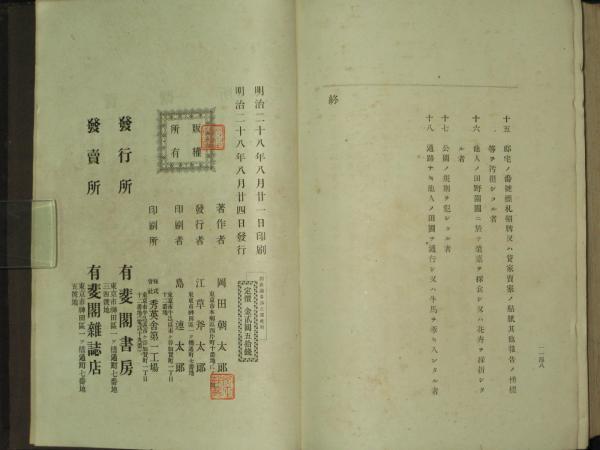 一一四八
十五 邸宅ノ番號標札招牌又ハ貸家賣家ノ貼紙其他報告ノ榜標
等ヲ汚損シタル者
十六 他人ノ田野園囿ニ於テ菜菓ヲ採食シ又ハ花卉ヲ採折シタ
ル者
十七 公園ノ規則ヲ犯シタル者
十八 通路ナキ他人ノ田圃ヲ通行シ又ハ牛馬ヲ牽キ入レタル者
終
定價 金貳圓五拾錢
明治二十八年八月廿一日印刷
明治二十八年八月廿四日發行
版權
所有
著作者 岡田朝太郎
發行者 江草斧太郎
東京市神田區一ツ橋通町七番地
印刷者 島連太郎
印刷所 株式會社 秀英舍第一工場
發行所 有斐閣書房
東京市神田區一ツ橋通町七番地
發賣所 有斐閣雜誌店
東京市神田區一ツ橋通町七番地